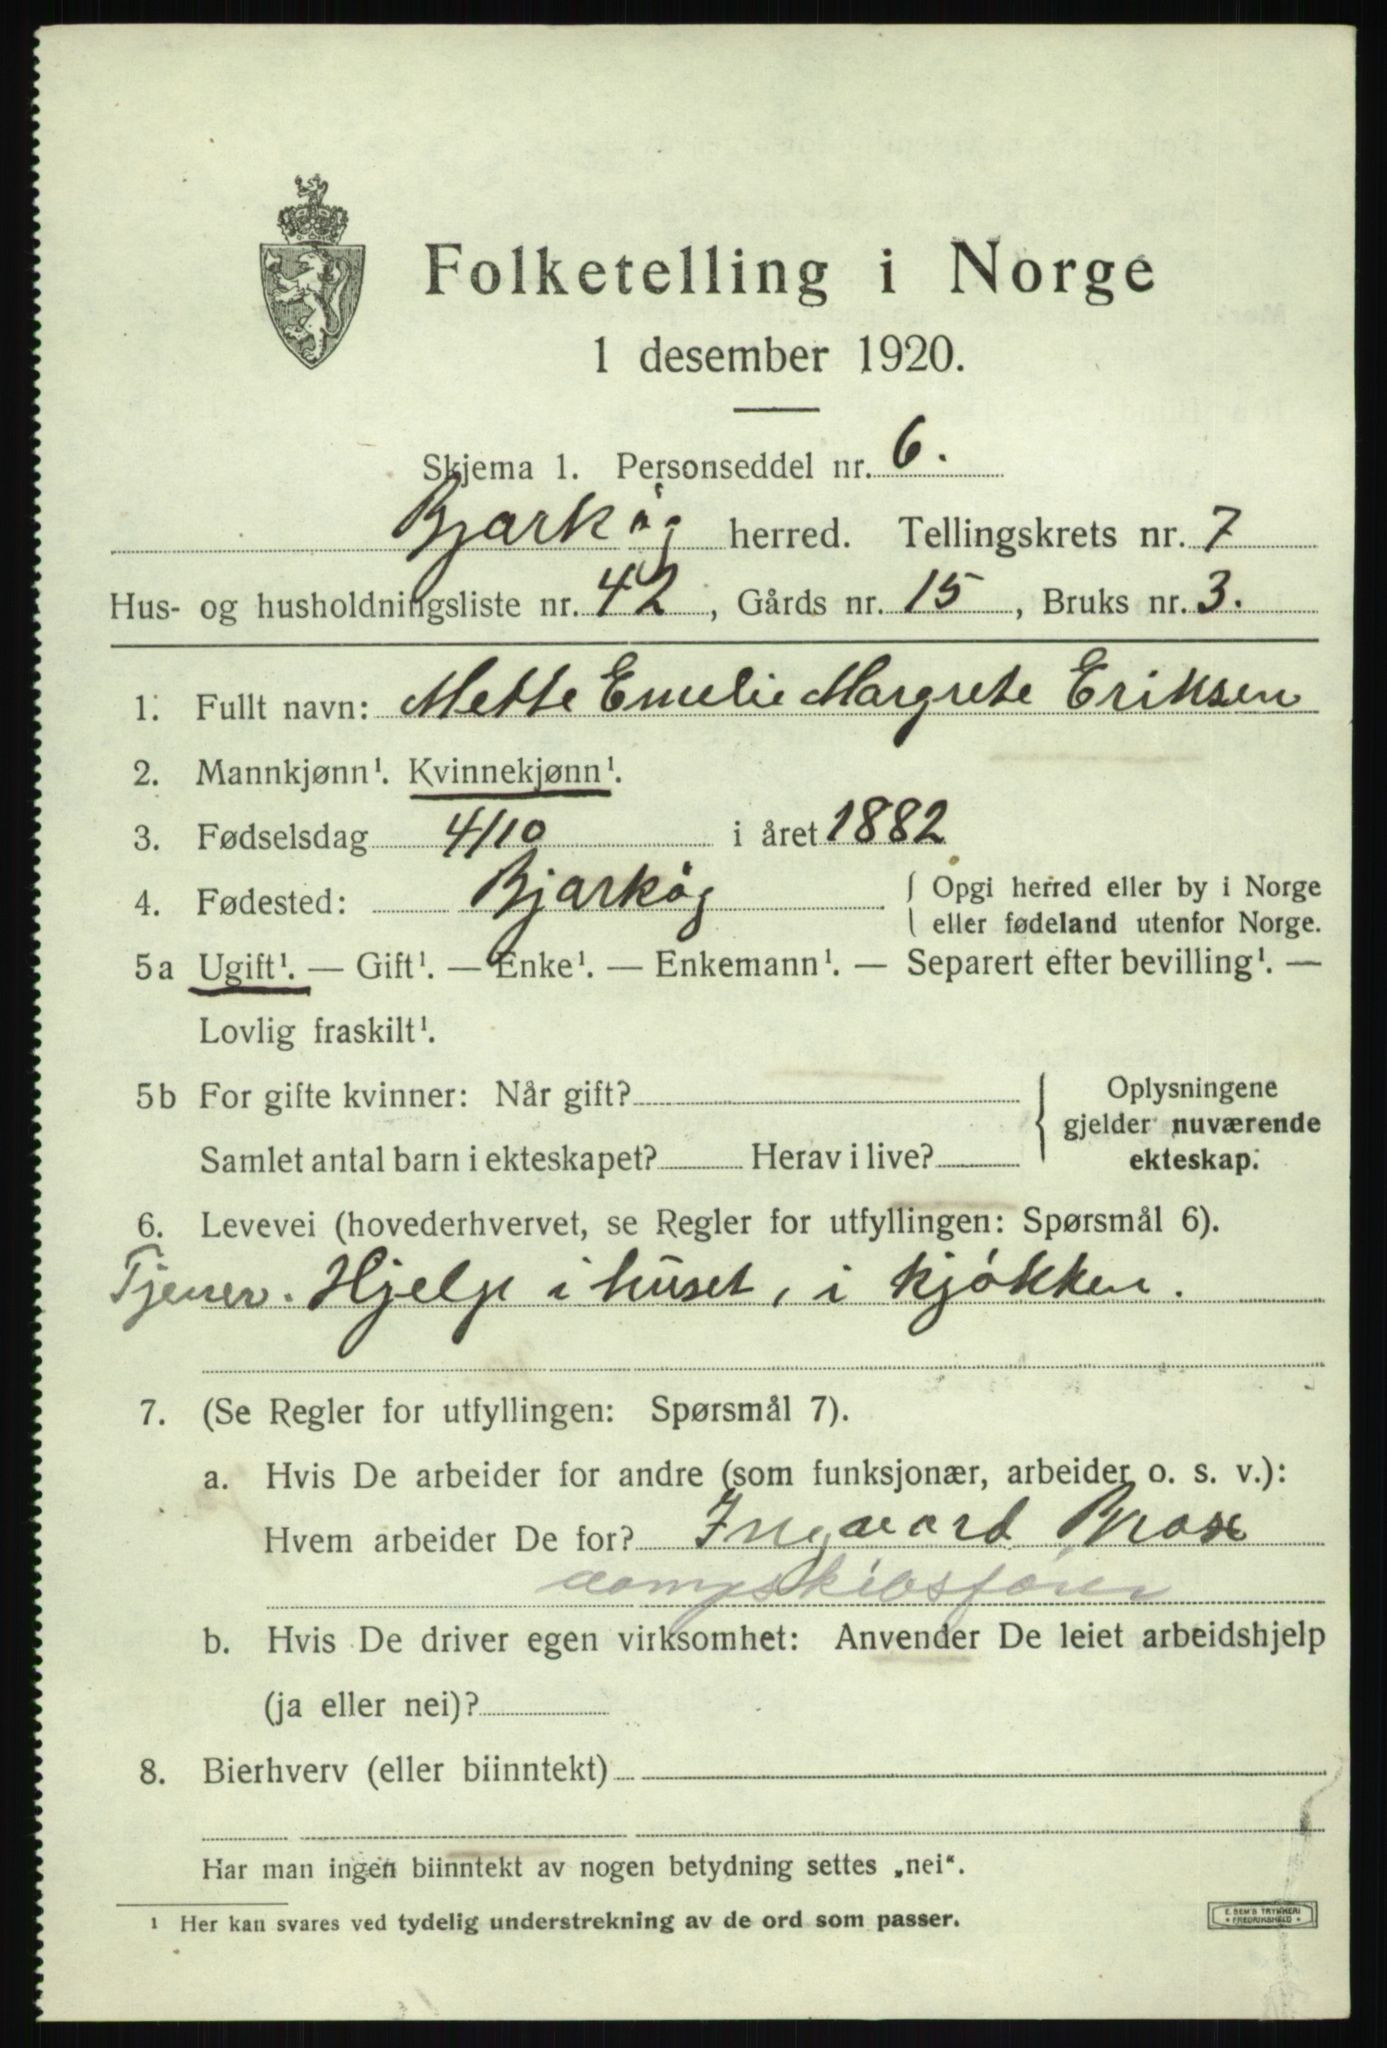 Folketelling i Norge
1 desember 1920.
Skjema 1. Personseddel nr. 6.
Bjarkøy herred. Tellingskrets nr. 7
Hus- og husholdningsliste nr. 42, Gårds nr. 15, Bruks nr. 3.
1. Fullt navn: Mette Emelie Margrete Eriksen
2. Mannkjønn¹. Kvinnekjønn¹.
3. Fødselsdag 4/10 i året 1882
4. Fødested: Bjarkøy { Opgi herred eller by i Norge
eller fødeland utenfor Norge.
5a Ugift¹. — Gift¹. — Enke¹. — Enkemann¹. — Separert efter bevilling¹. —
Lovlig fraskilt¹.
5b For gifte kvinner: Når gift?
Samlet antal barn i ekteskapet? Herav i live?
Oplysningene
gjelder nuværende
ekteskap.
6. Levevei (hovederhvervet, se Regler for utfyllingen: Spørsmål 6).
Tjener. Hjelp i huset, i kjøkken.
7. (Se Regler for utfyllingen: Spørsmål 7).
a. Hvis De arbeider for andre (som funksjonær, arbeider o. s. v.):
Hvem arbeider De for? Ingvard
dampskibsfører
b. Hvis De driver egen virksomhet: Anvender De leiet arbeidshjelp
(ja eller nei)?
8. Bierhverv (eller biinntekt)
Har man ingen biinntekt av nogen betydning settes „nei“.
¹ Her kan svares ved tydelig understrekning av de ord som passer.
E. SEM'S TRYKKERI
FREDRIKSHALD